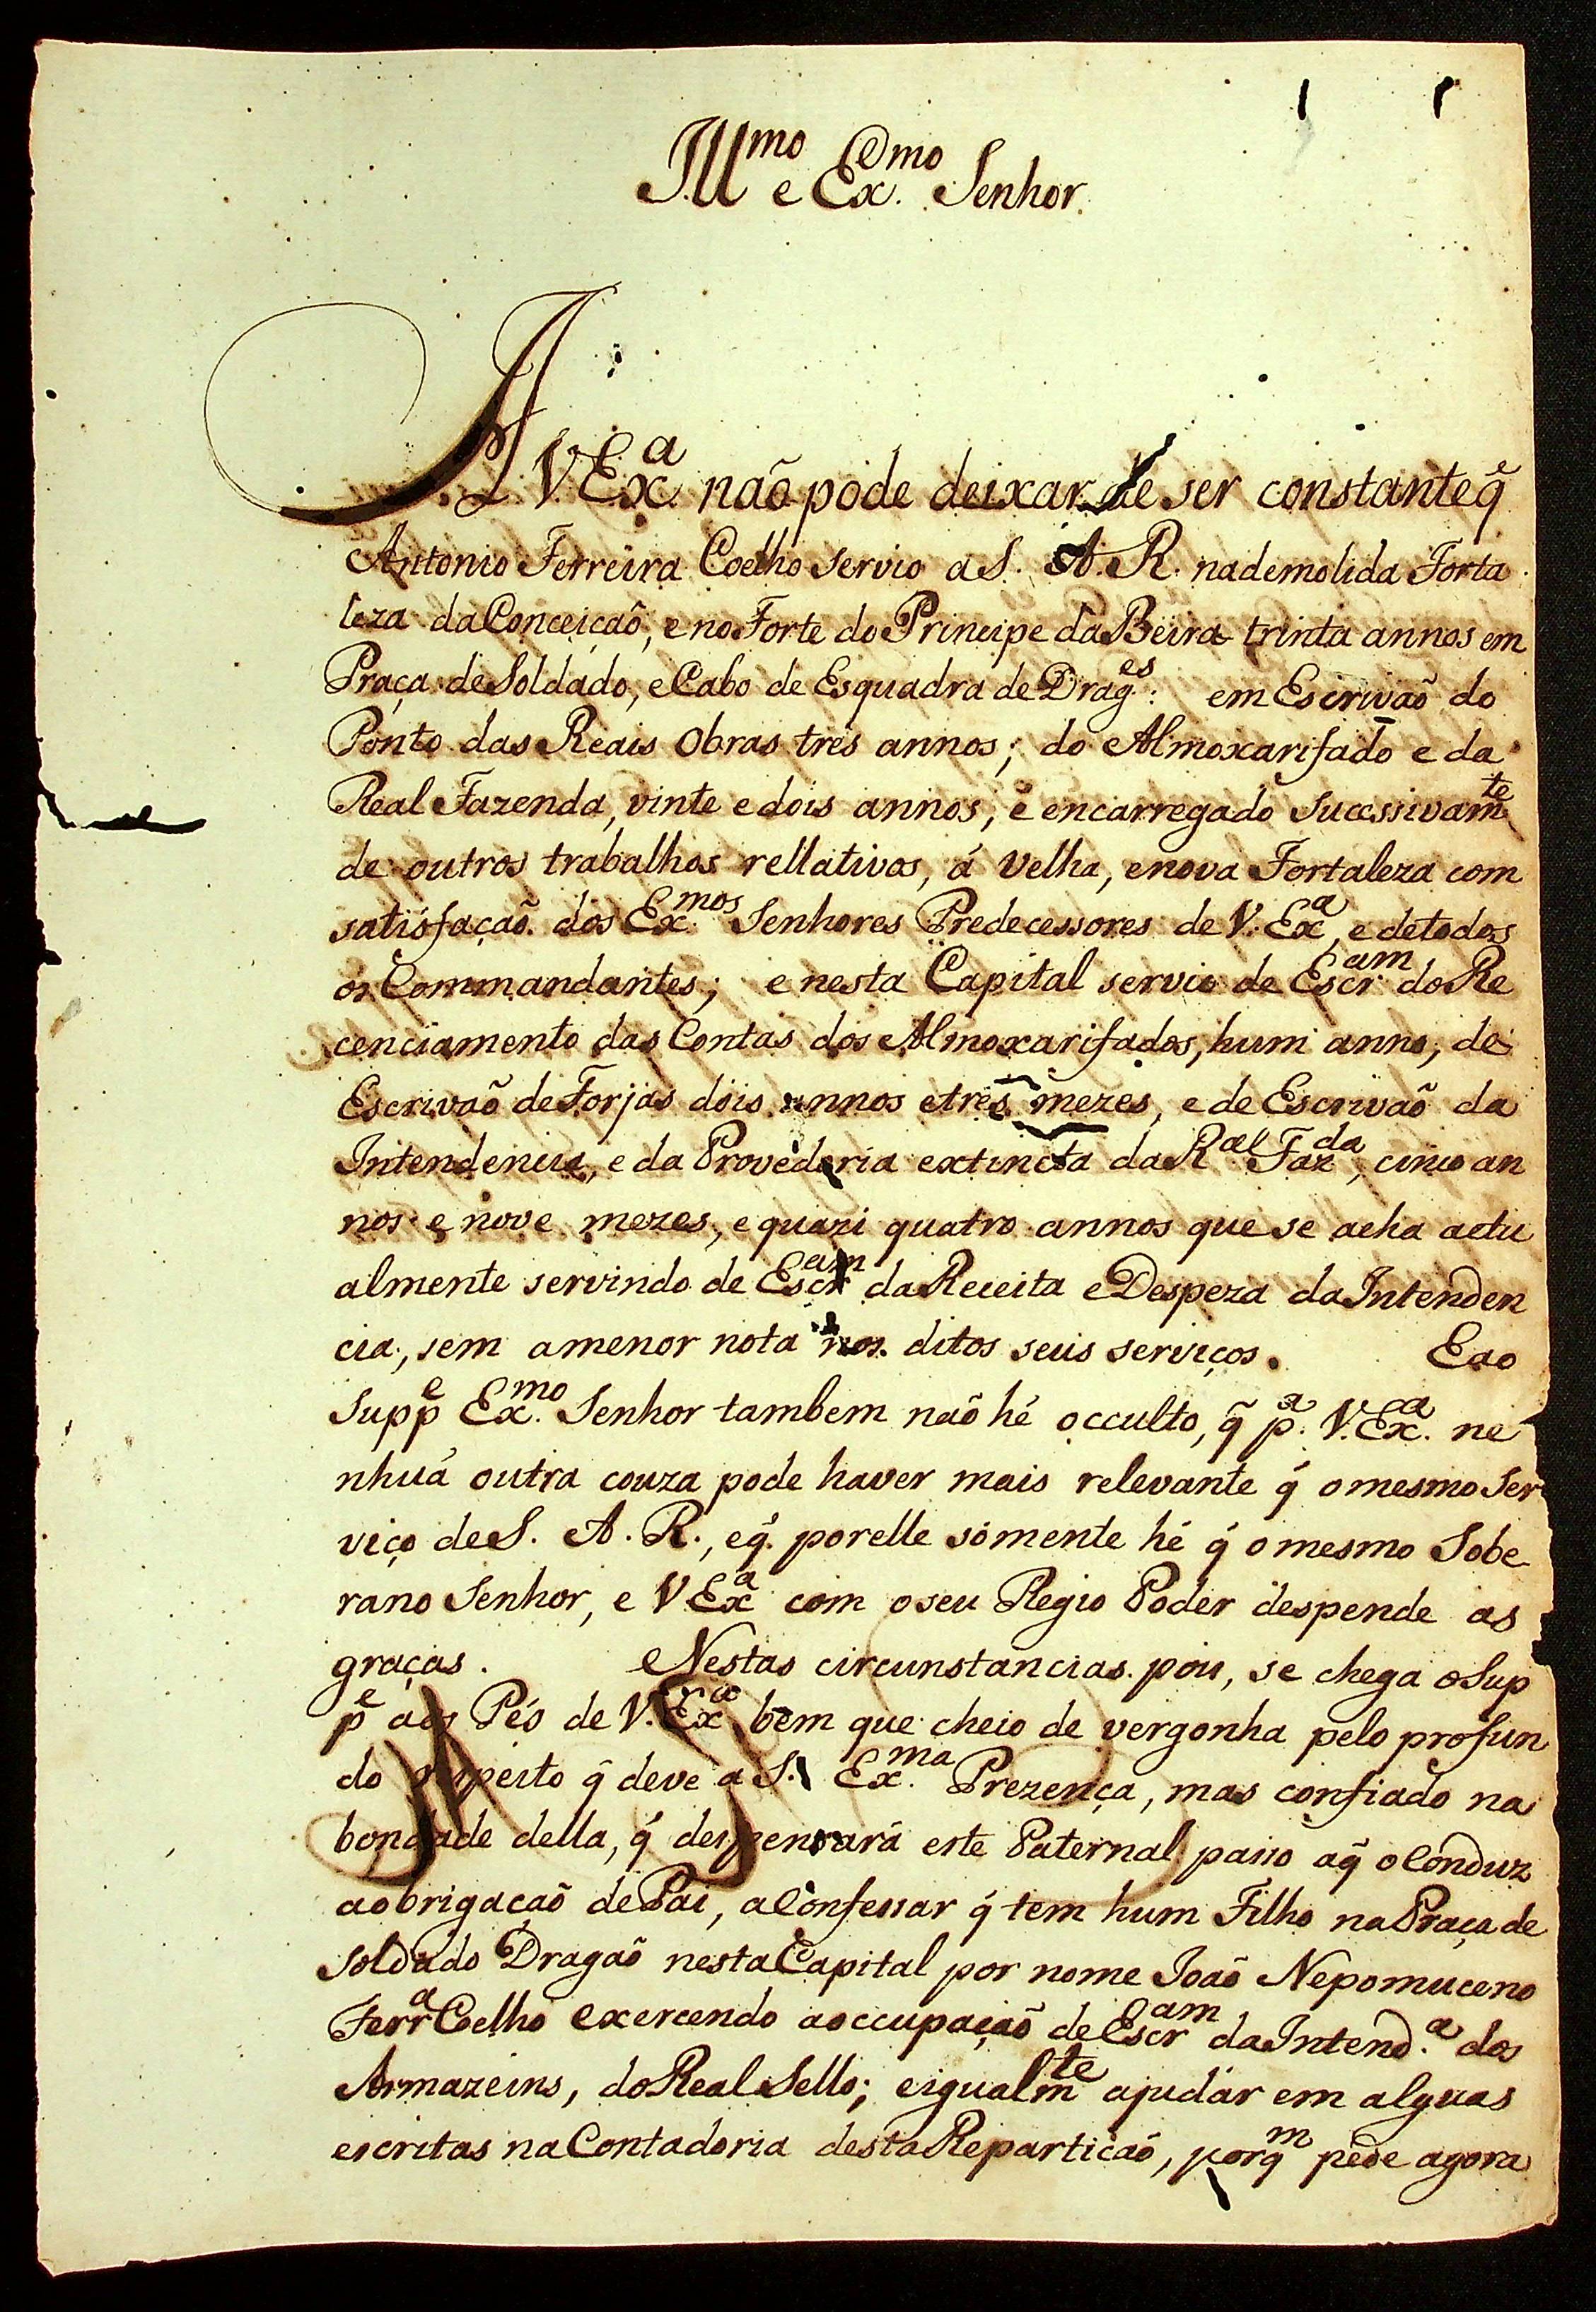 Ill.mo e Ex.mo Senhor.
A V Ex.a não pode deixar de ser constante q̃
Antonio Ferreira Coelho servio a S. A. R. na demolida Forta
leza da Conceição, e no Forte do Principe da Beira trinta annos em
Praça de Soldado, e Cabo de Esquadra de Drag.es: em Escrivão do
Ponto das Reais Obras tres annos; do Almoxarifado e da
Real Fazenda, vinte e dois annos, e encarregado sucessivam.te
de outros trabalhos rellativos, á velha, e nova Fortaleza com
satisfação dos Ex.mos Senhores Predecessores de V. Ex.a, e de todos
os Commandantes; e nesta Capital servio de Escr.am do Re
cenciamento das Contas dos Almoxarifados, hum anno, de
Escrivão de Forjas dois annos e tres mezes, e de Escrivão da
Intendencia, e da Provedoria extincta da R.al Faz.da, cinco an
nos e nove mezes, e quazi quatro annos que se acha actu
almente servindo de Escr.am da Receita e Despeza da Intenden
cia, sem a menor nota nos ditos seus serviços. E ao
Supp.e Ex.mo Senhor tambem não hé occulto, q̃ p.a V. Ex.a ne
nhuã outra couza pode haver mais relevante q̃ o mesmo Ser
viço de S. A. R., e q̃ por elle sómente hé q̃ o mesmo Sobe
rano Senhor, e V Ex.a com o seu Regio Poder despende as
graças. Nestas circunstancias pois, se chega o Sup
p.e aos Pés de V. Ex.a bem que cheio de vergonha pelo profun
do respeito q̃ deve a S. Ex.ma Prezença, mas confiado na
bondade della, q̃ despensará este Paternal passo a q̃ o Conduz
a obrigação de Pai, a Confessar q̃ tem hum Filho na Praça de
Soldado Dragão nesta Capital por nome João Nepomuceno
Ferr.a Coelho exercendo a occupação de Escr.am da Intend.a dos
Armazeins, do Real Sello; e igualm.te ajudár em alguas
escritas na Contadoria desta Repartição, por q.m pede agora